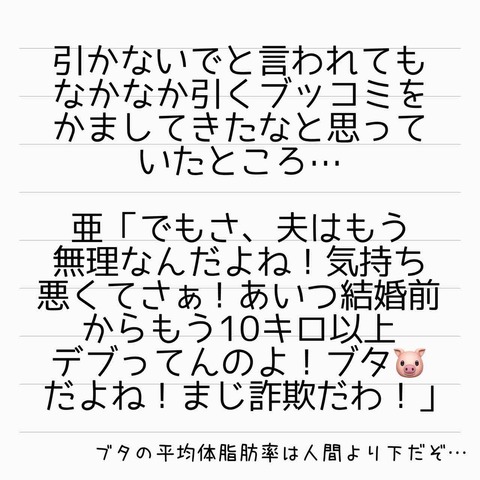 引かないでと言われても
なかなか引くブッコミを
かましてきたなと思って
いたところ…
亜「でもさ、夫はもう
無理なんだよね！気持ち
悪くてさぁ！あいつ結婚前
からもう10キロ以上
デブってんのよ！ブタ🐷
だよね！まじ詐欺だわ！」
ブタの平均体脂肪率は人間より下だぞ…